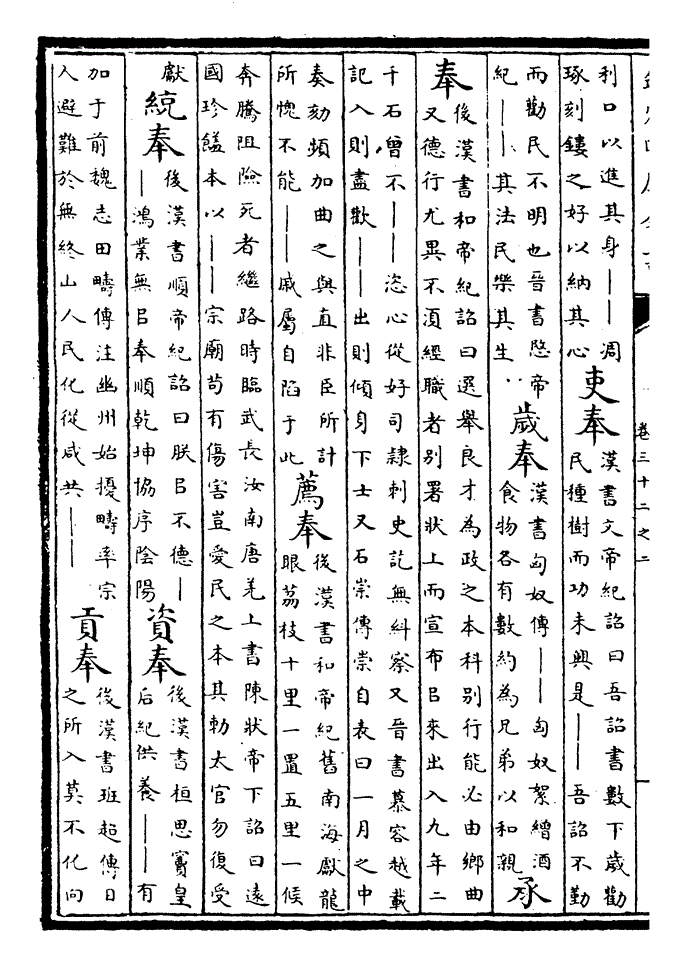 卷三十二之二
利口以進其身——凋
琢刻鏤之好以納其心
吏奉
漢書文帝紀詔曰吾詔書數下歲勸
民種樹而功未興是——吾詔不勤
而勸民不明也晉書愍帝
紀——其法民樂其生
歲奉
漢書匈奴傳——匈奴絮繒酒
食物各有數約為兄弟以和親
承
奉
後漢書和帝紀詔曰選舉良才為政之本科別行能必由鄉曲
又德行尤異不湏經職者别署狀上而宣布㠯來出入九年二
千石曾不——恣心從好司隸刺史訖無糾察又晉書慕容越載
記入則盡歡——出則傾身下士又石崇傳崇自表曰一月之中
奏劾頻加曲之與直非臣所計
所愧不能——戚屬自陷于此
薦奉
後漢書和帝紀舊南海獻龍
眼荔枝十里一置五里一候
奔騰阻險死者繼路時臨武長汝南唐羌上書陳狀帝下詔曰遠
國珍饈本以——宗廟苟有傷害豈愛民之本其勅太官勿復受
獻
統奉
後漢書順帝紀詔曰朕㠯不德—
—鴻業無㠯奉順乾坤協序陰陽
資奉
後漢書桓思竇皇
后紀供養——有
加于前魏志田疇傳注幽州始擾疇率宗
人避難於無終山人民化從咸共——
貢奉
後漢書班超傳日
之所入莫不化向